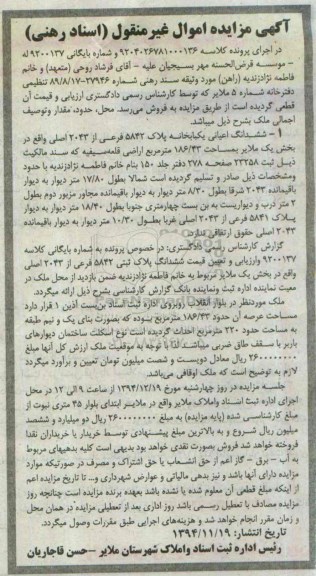 آگهی مزایده اموال غیرمنقول (اسناد رهنی)
در اجرای پرونده کلاسه ۹۲۰۴۰۲۶۷۸۱۰۰۰۱۳۶ و شماره بایگانی ۹۲۰۰۱۳۷ له
- موسسه قرض‌الحسنه مهر بسیجیان علیه - آقای فرشاد روحی (متعهد) و خانم
فاطمه نژادزندیه (راهن) مورد وثیقه سند رهنی شماره ۲۷۹۴۶-۸۹/۸/۱۷ تنظیمی
دفترخانه شماره ۵ ملایر که توسط کارشناس رسمی دادگستری ارزیابی و قیمت آن
قطعی گردیده است از طریق مزایده به فروش می‌رسد. محل، حدود، مقدار وتوصیف
اجمالی ملک بشرح ذیل میباشد.
۱ - ششدانگ اعیانی یکبابخانه پلاک ۵۸۴۲ فرعی از ۲۰۴۳ اصلی واقع در
بخش یک ملایر بمساحت ۱۸۶/۴۳ مترمربع اراضی که سند مالکیت
ذیل ثبت ۲۳۲۵۸ صفحه ۲۷۸ دفتر جلد ۱۵۰ بنام خانم فاطمه نژادزندیه با حدود
ومشخصات ذیل صادر و تسلیم گردیده است شمالا بطول ۱۷/۸۰ متر دیوار به دیوار
باقیمانده ۲۰۴۳ شرقا بطول ۸/۳۰ متر دیوار به دیوار باقیمانده مجاور مزبور دوم بطول
۲ متر درب و دیواریست به بن بست چهارمتری جنوبا بطول ۱۸/۴۰ متر دیوار به دیوار
پلاک ۵۸۴۱ فرعی از ۲۰۴۳ اصلی غربا بطول ۱۰/۳۰ متر دیوار به دیوار باقیمانده
۲۰۴۳ اصلی حقوق ارتفاقی ندارد
گزارش کارشناس رسمی دادگستری: در خصوص پرونده به شماره بایگانی کلاسه
۹۲۰۰۱۳۷ وارزیابی و تعیین قیمت ششدانگ پلاک ثبتی ۵۸۴۲ فرعی از ۲۰۴۳ اصلی
واقع در بخش یک ملایر مربوط به خانم فاطمه نژادزندیه ضمن بازدید از محل ملک در
معیت نماینده اداره ثبت ونماینده بانک گزارش کارشناسی بشرح ذیل ارائه میگردد.
ملک موردنظر در بلوار انقلاب روبروی اداره ثبت اسناد بن‌بست آذین ۱ قرار دارد
مساحت عرصه آن حدود ۱۸۶/۴۳ مترمربع بوده که بصورت بنای یک و نیم طبقه
به مساحت حدود ۲۲۰ مترمربع احداث گردیده است نوع اسکلت ساختمان دیوارهای
باربر با سقف طاق ضربی میباشد لذا با توجه به موقعیت ملک ارزش کل آنها مبلغ
۲۶۰۰۰۰۰۰۰۰ ریال معادل دویست و شصت میلیون تومان تعیین و برآورد میگردد
لازم به توضیح است که ملک اوقافی می‌باشد.
جلسه مزایده در روز چهارشنبه مورخ ۱۳۹۴/۱۲/۱۹ از ساعت ۹ الی ۱۲ در محل
اجرای اداره ثبت اسناد واملاک ملایر واقع در ملایر ابتدای بلوار ۳۵ متری نبوت از
مبلغ کارشناسی شده (پایه مزایده) به مبلغ ۲۶۰۰۰۰۰۰۰۰ ریال دو میلیارد و ششصد
میلیون ریال شروع و به بالاترین مبلغ پیشنهادی توسط خریدار یا خریداران نقدا
فروخته خواهد شد فروش بصورت نقدی خواهد بود بدیهی است کلیه بدهیهای مربوط
به آب - برق - گاز اعم از حق انشعاب یا حق اشتراک و مصرف در صورتیکه مورد
مزایده دارای آنها باشد و نیز بدهی مالیاتی و عوارض شهرداری و... تا تاریخ مزایده اعم
از اینکه مبلغ قطعی آن معلوم شده یا نشده باشد بعهده برنده مزایده است چنانچه روز
مزایده مصادف با تعطیل رسمی باشد روز اداری بعد از تعطیلی مزایده در همان محل
و زمان مقرر انجام خواهد شد و هزینه‌های اجرایی طبق مقررات وصول میگردد.
تاریخ انتشار: ۱۳۹۴/۱۱/۱۹
رئیس اداره ثبت اسناد واملاک شهرستان ملایر - حسن قاجاریان